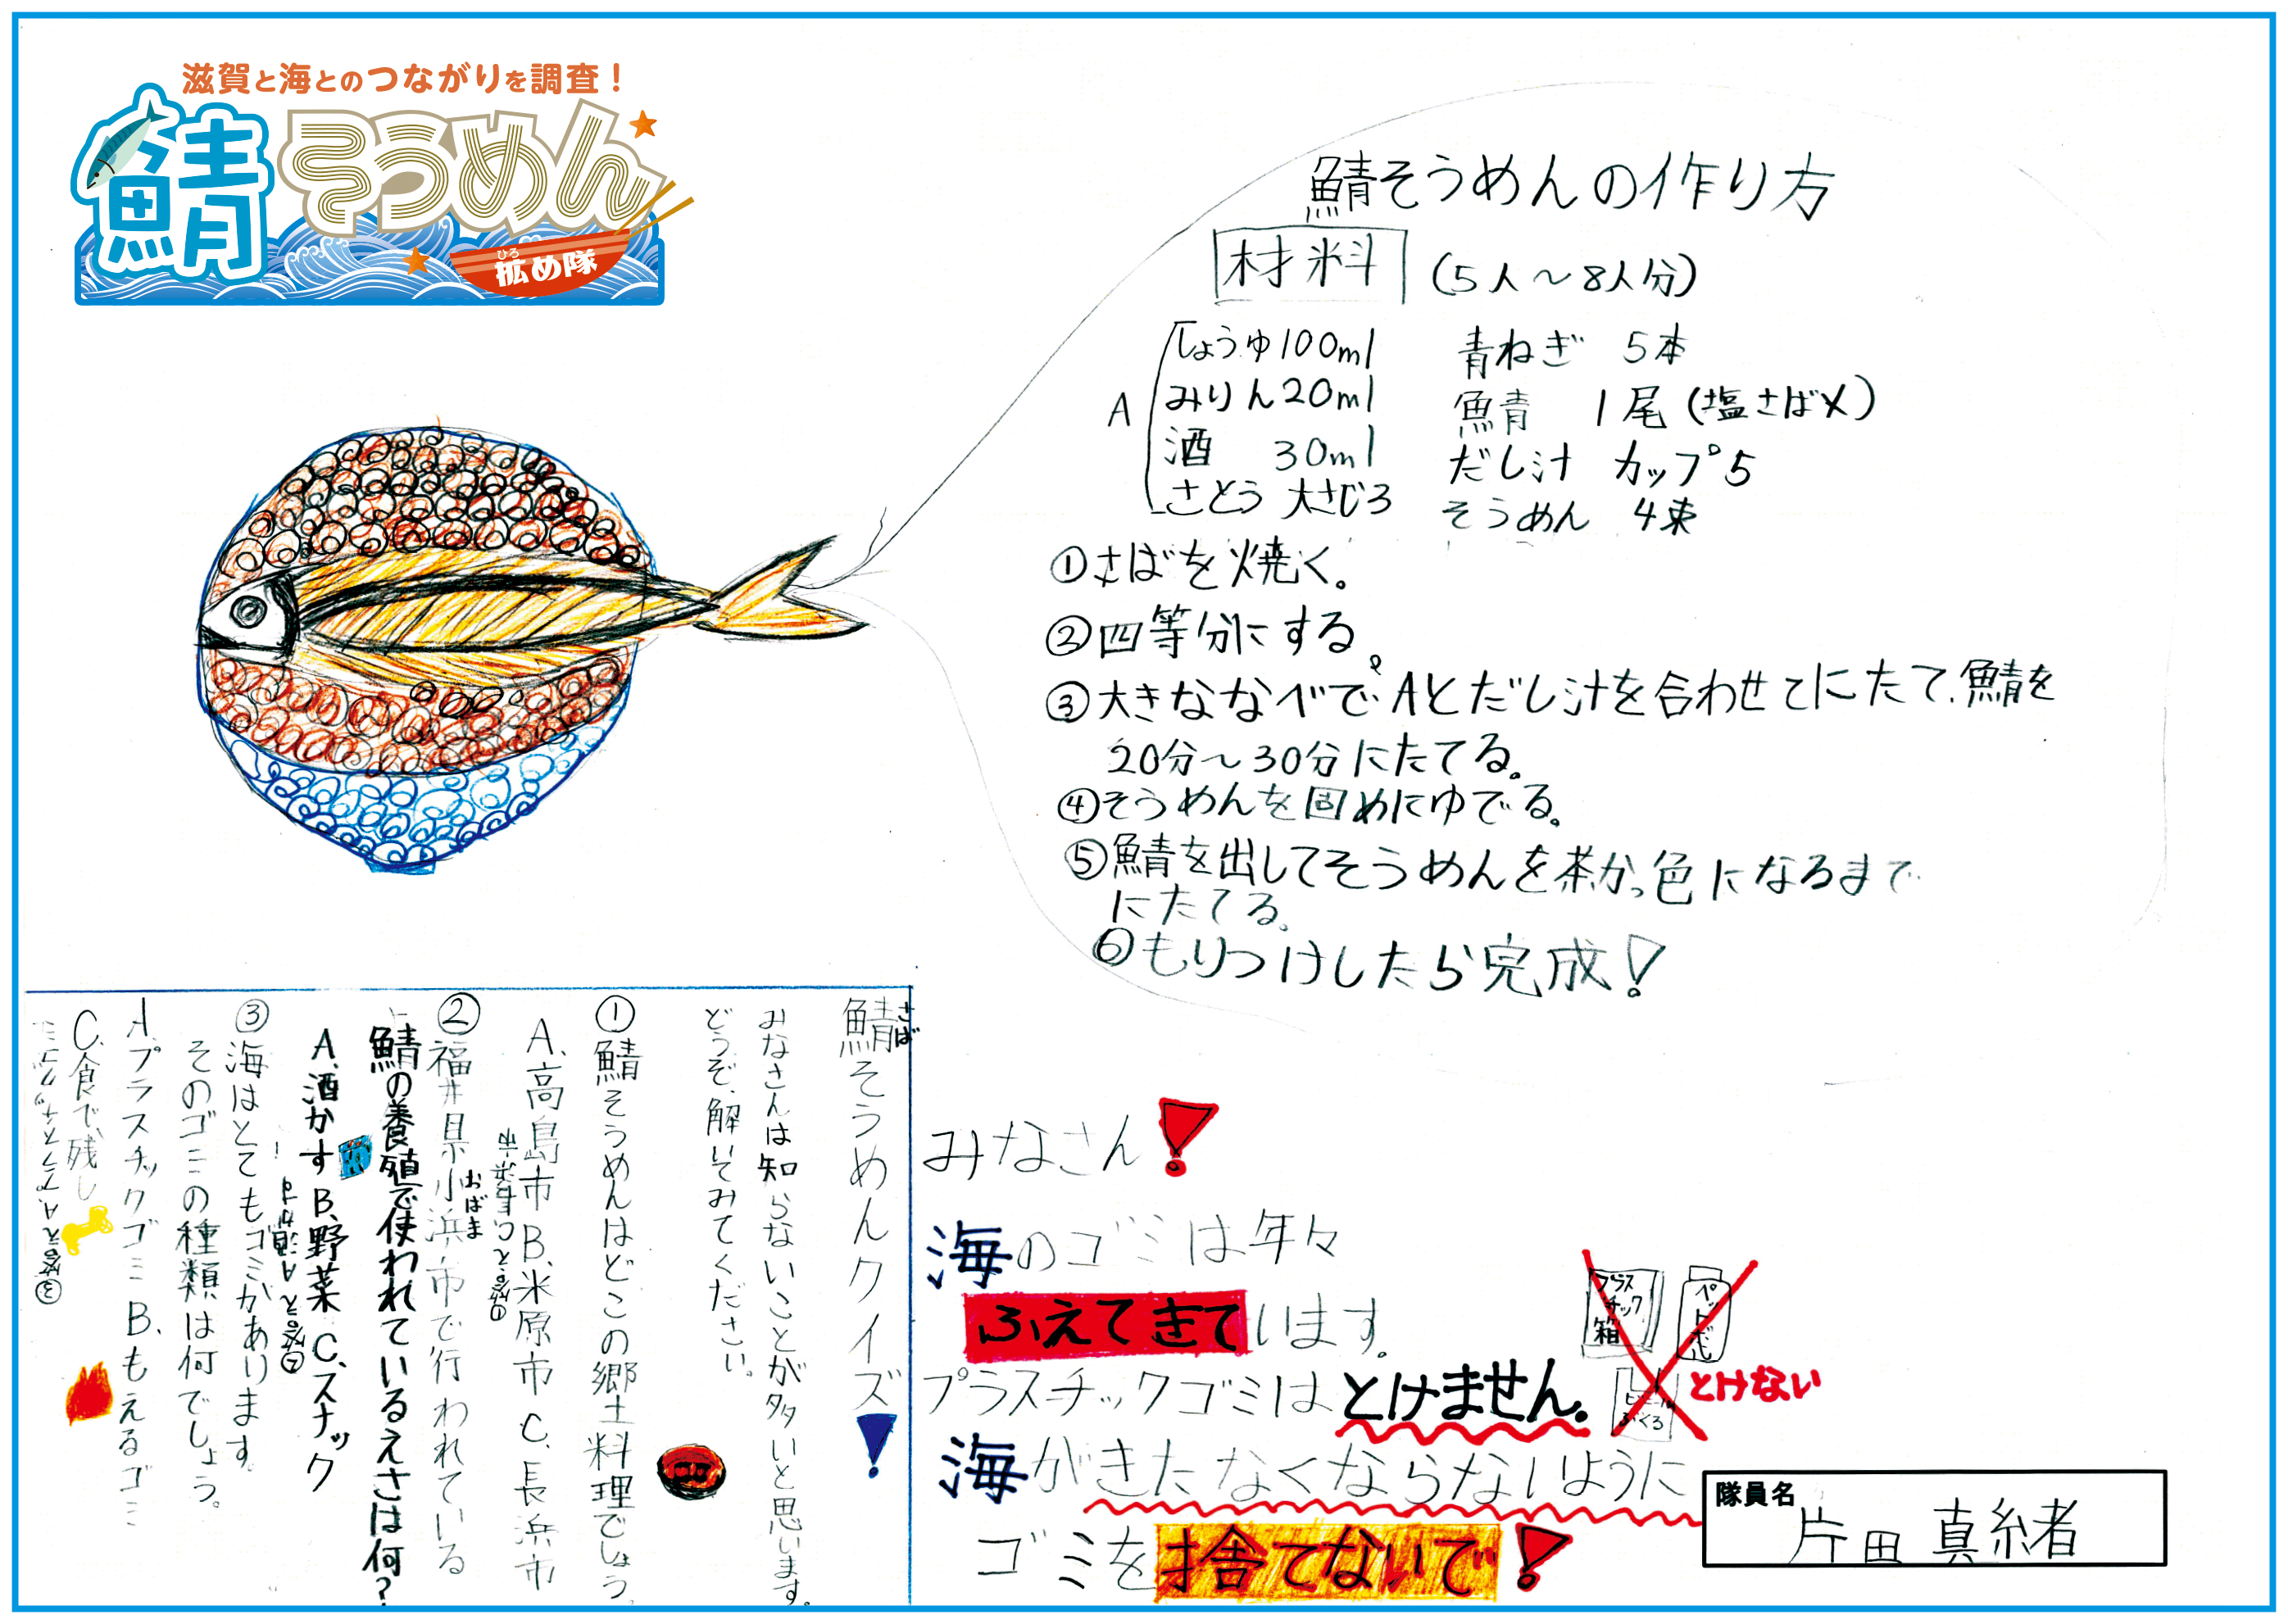 滋賀と海とのつながりを調査！
鯖そうめん
ひろ
拡め隊
鯖そうめんの作り方
材料 (5人～8人分)
A
しょうゆ100ml
みりん20ml
酒 30ml
さとう 大さじ3
青ねぎ 5本
鯖 1尾(塩さば×)
だし汁 カップ5
そうめん 4束
①さばを焼く。
②四等分にする。
③大きななべで、Aとだし汁を合わせてにたて、鯖を
20分～30分にたてる。
④そうめんを固めにゆでる。
⑤鯖を出してそうめんを茶かっ色になるまで
にたてる。
⑥もりつけしたら完成！
鯖そうめんクイズ！
さば
みなさんは知らないことが多いと思います。
どうぞ、解いてみてください。
①鯖そうめんはどこの郷土料理でしょう。
A.高島市 B.米原市 C.長浜市
①答え.C.長浜市
②福井県小浜市で行われている
おばま
鯖の養殖で使われているえさは何?
A.酒かす B.野菜 C.スナック
②答え A 酒かす
③海はとてもゴミがあります。
そのゴミの種類は何でしょう。
A.プラスチックゴミ B.もえるゴミ
C.食べ残し
③答え A.プラスチックゴミ
みなさん！
海のゴミは年々
ふえてきています。
プラスチックゴミはとけません。
海がきたなくならないように
ゴミを捨てないで！
プラスチック箱
ペットボトル
ビニールぶくろ
とけない
隊員名
片田 真緒